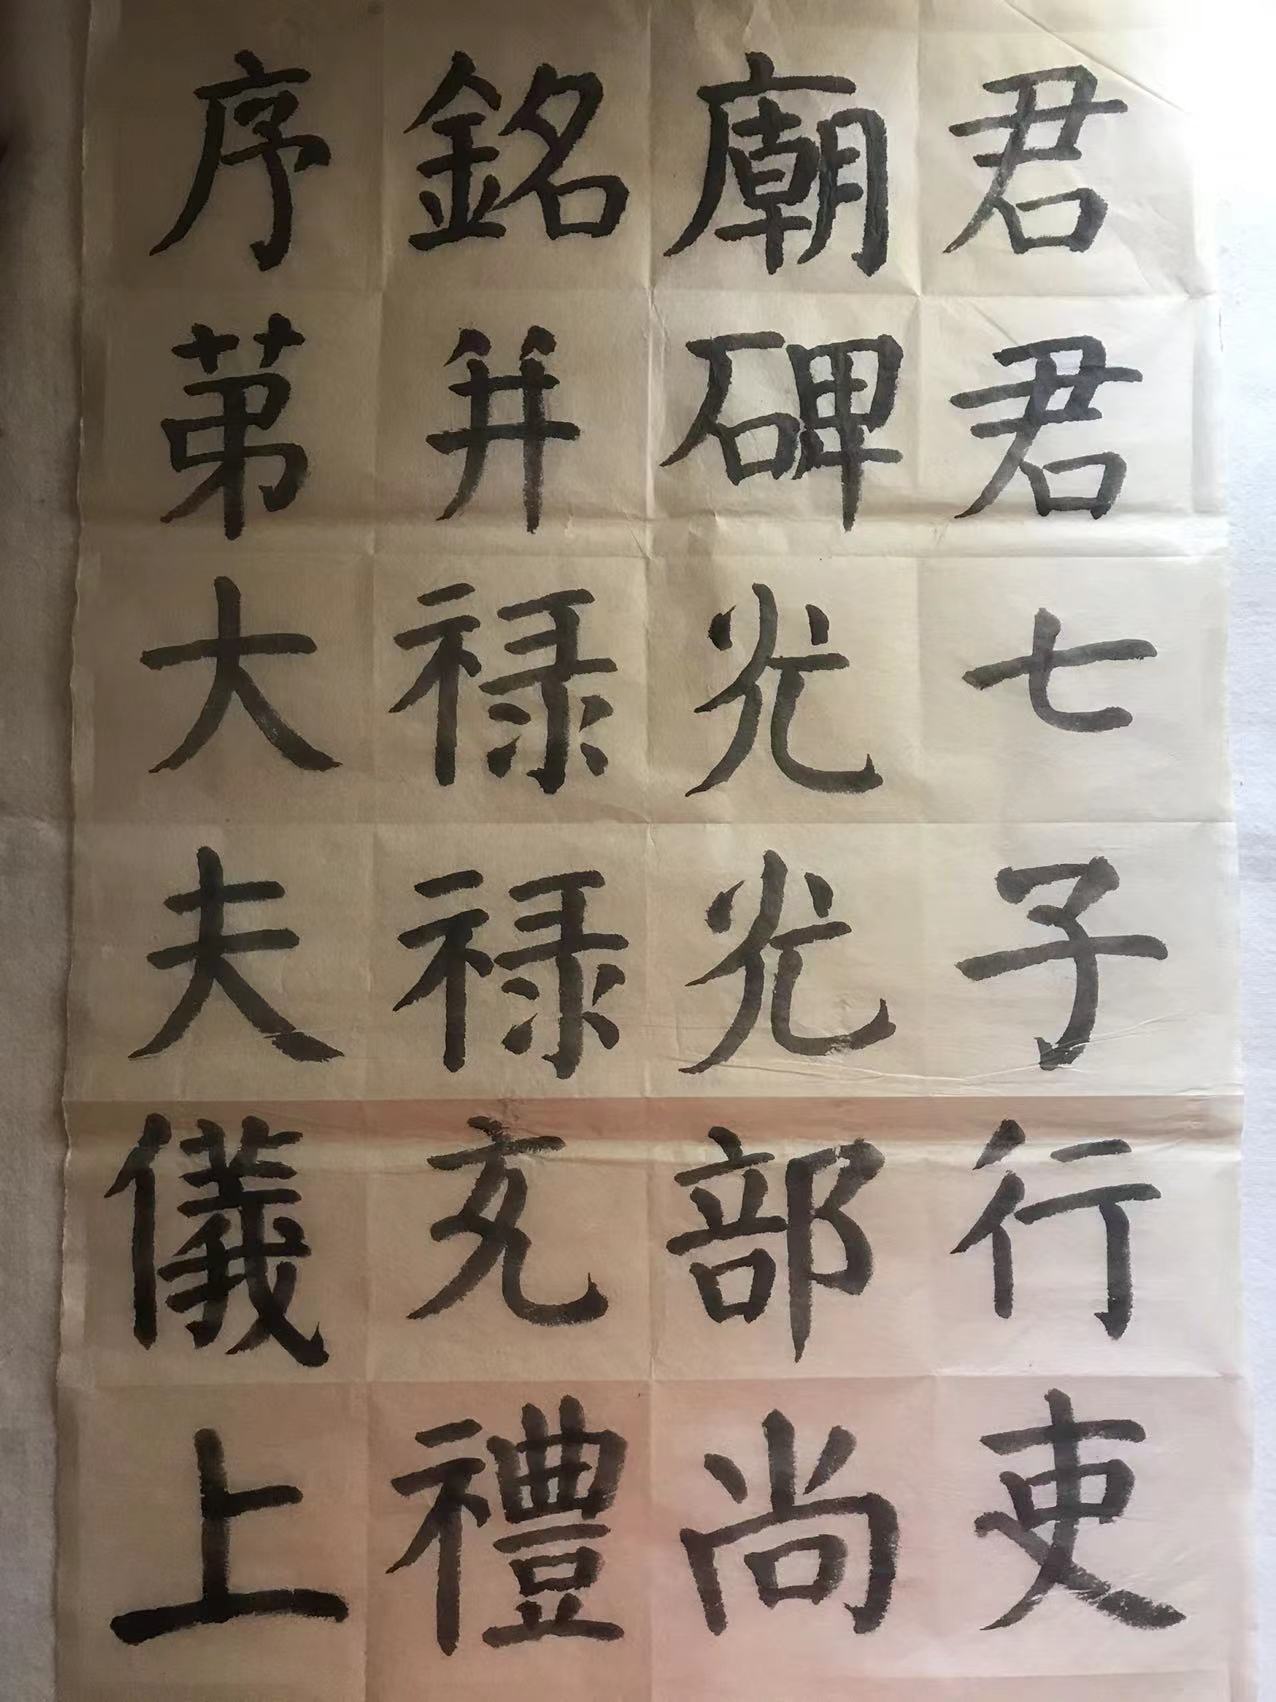 君君七子行吏
廟碑光光部尚
銘并禄禄充禮
序苐大夫儀上